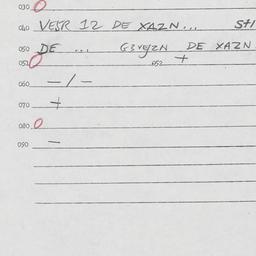 030 O
040 VESR 12 DE XAZN... S+1
050 DE ... G3 DE XAZN
051 O 052 +
060 - / -
070 +
080 O
090 -